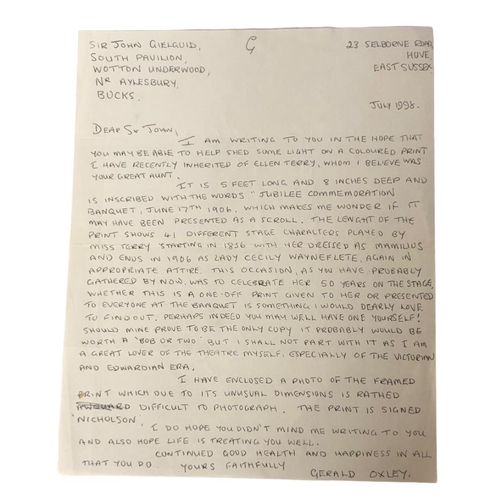 SIR JOHN GIELGUID, G 23 SELBORNE ROAD,
SOUTH PAVILION, HOVE,
WOTTON UNDERWOOD, EAST SUSSEX
NR AYLESBURY,
BUCKS.
JULY 1998.
DEAR SIR JOHN,
I AM WRITING TO YOU IN THE HOPE THAT
YOU MAY BE ABLE TO HELP SHED SOME LIGHT ON A COLOURED PRINT
I HAVE RECENTLY INHERITED OF ELLEN TERRY, WHOM I BELIEVE WAS
YOUR GREAT AUNT.
IT IS 5 FEET LONG AND 8 INCHES DEEP AND
IS INSCRIBED WITH THE WORDS "JUBILEE COMMEMORATION
BANQUET, JUNE 17TH 1906, WHICH MAKES ME WONDER IF IT
MAY HAVE BEEN PRESENTED AS A SCROLL. THE LENGHT OF THE
PRINT SHOWS 41 DIFFERENT STAGE CHARACTERS PLAYED BY
MISS TERRY STARTING IN 1856 WITH HER DRESSED AS MAMILIUS
AND ENDS IN 1906 AS LADY CECILY WAYNEFLETE, AGAIN IN
APPROPRIATE ATTIRE. THIS OCCASION, AS YOU HAVE PROBABLY
GATHERED BY NOW, WAS TO CELEBRATE HER 50 YEARS ON THE STAGE,
WHETHER THIS IS A ONE-OFF PRINT GIVEN TO HER OR PRESENTED
TO EVERYONE AT THE BANQUET IS SOMETHING I WOULD DEARLY LOVE
TO FIND OUT, PERHAPS INDEED YOU MAY WELL HAVE ONE YOURSELF!
SHOULD MINE PROVE TO BE THE ONLY COPY IT PROBABLY WOULD BE
WORTH A 'BOB OR TWO' BUT I SHALL NOT PART WITH IT AS I AM
A GREAT LOVER OF THE THEATRE MYSELF, ESPECIALLY OF THE VICTORIAN
AND EDWARDIAN ERA.
I HAVE ENCLOSED A PHOTO OF THE FRAMED
PRINT WHICH DUE TO ITS UNUSUAL DIMENSIONS IS RATHER
DIFFICULT TO PHOTOGRAPH. THE PRINT IS SIGNED
'NICHOLSON'.
I DO HOPE YOU DIDN'T MIND ME WRITING TO YOU
AND ALSO HOPE LIFE IS TREATING YOU WELL.
CONTINUED GOOD HEALTH AND HAPPINESS IN ALL
THAT YOU DO YOURS FAITHFULLY
GERALD OXLEY.